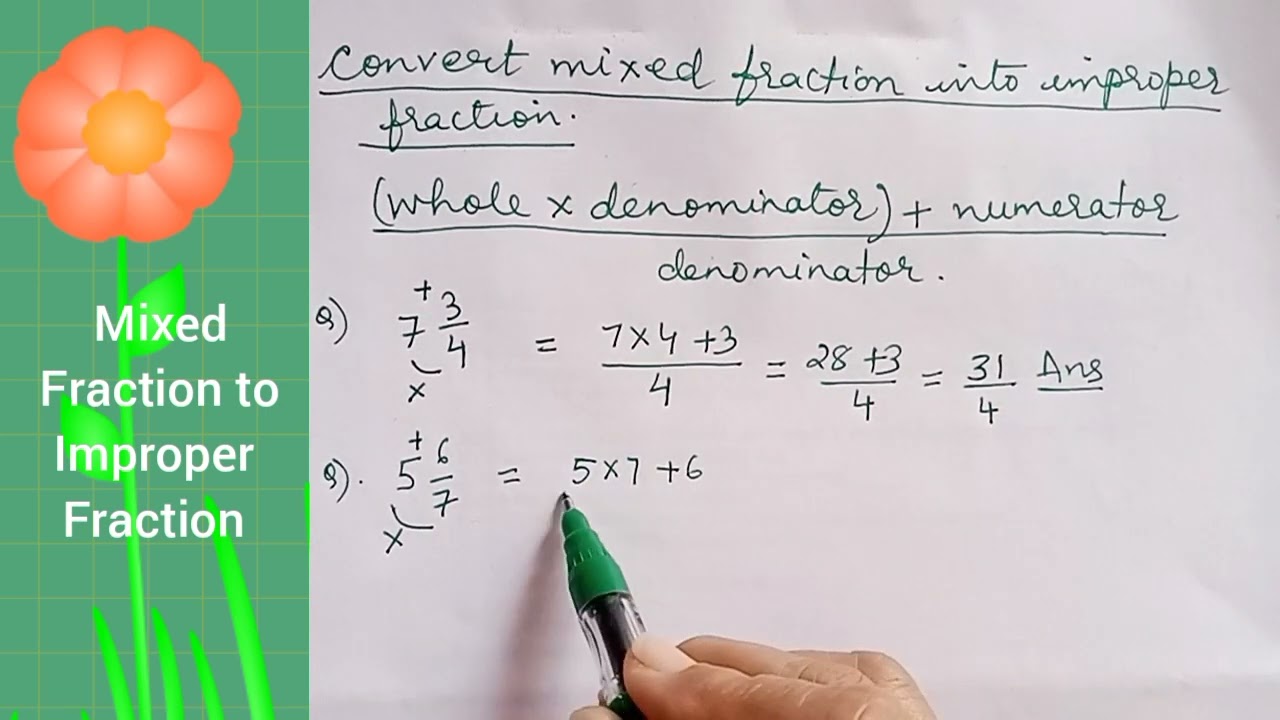 Mixed
Fraction to
Improper
Fraction
Convert mixed fraction into improper
fraction.
(whole × denominator) + numerator
denominator.
Q) 7 3/4 = 7×4+3/4 = 28+3/4 = 31/4 Ans
+
×
Q). 5 6/7 = 5×7+6
+
×